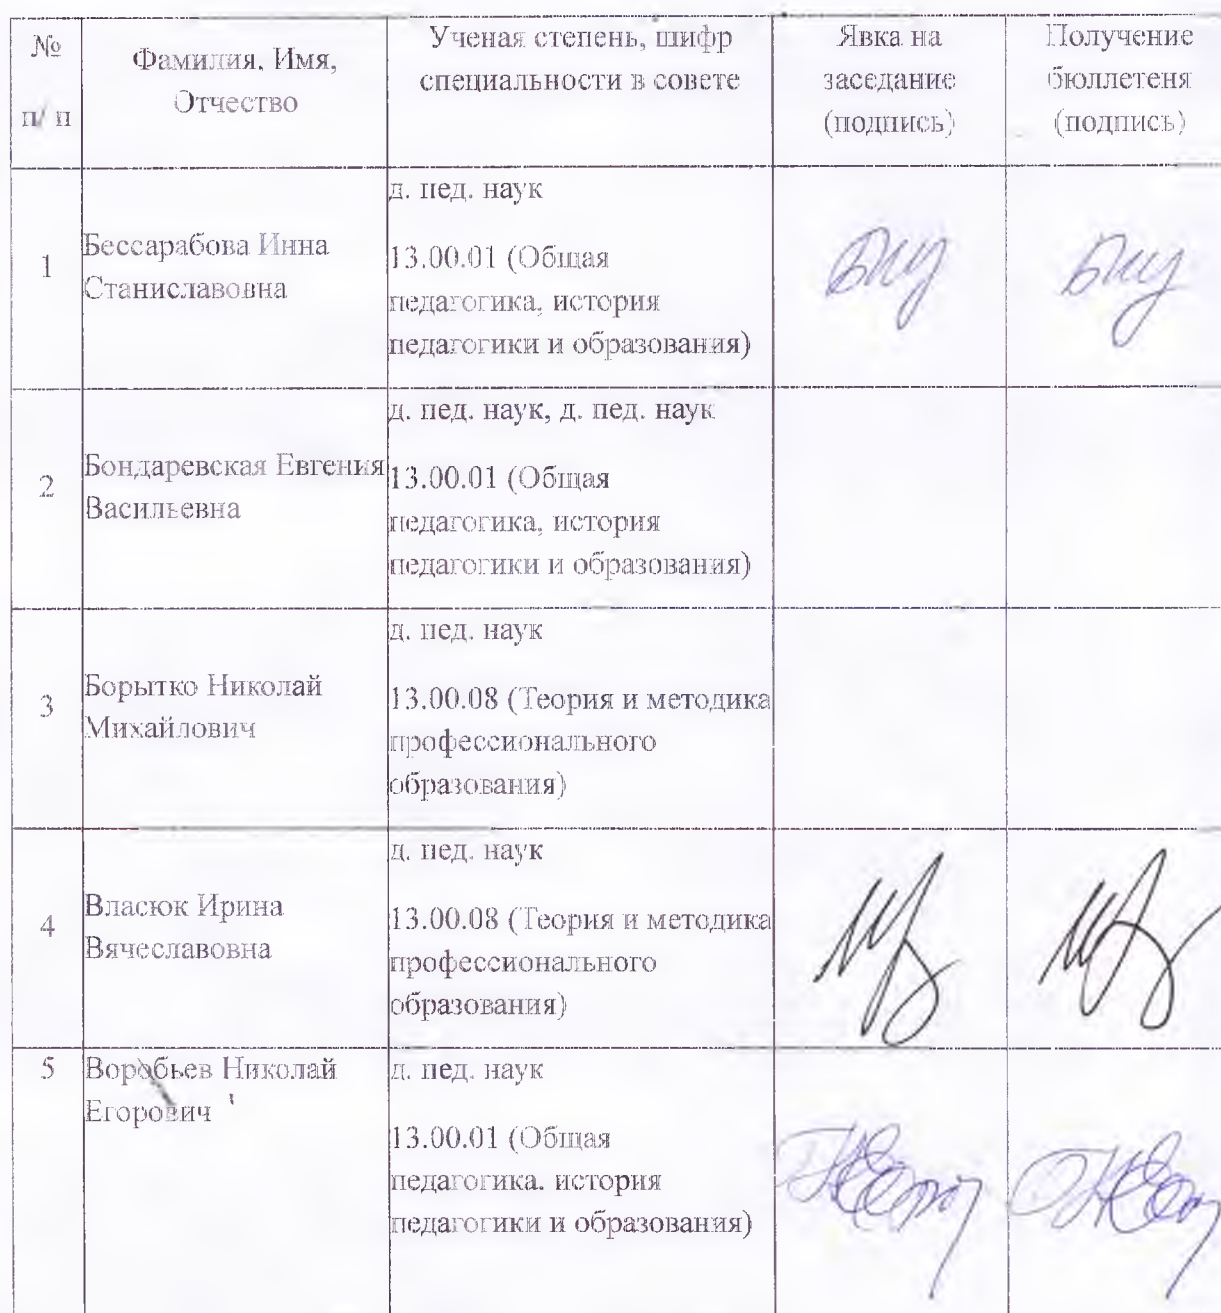 №
п/ п
Фамилия, Имя,
Отчество
Ученая степень, шифр
специальности в совете
Явка на
заседание
(подпись)
Получение
бюллетеня
(подпись)
1
Бессарабова Инна
Станиславовна
д. пед. наук
13.00.01 (Общая
педагогика, история
педагогики и образования)
2
Бондаревская Евгения
Васильевна
д. пед. наук, д. пед. наук
13.00.01 (Общая
педагогика, история
педагогики и образования)
3
Борытко Николай
Михайлович
д. пед. наук
13.00.08 (Теория и методика
профессионального
образования)
4
Власюк Ирина
Вячеславовна
д. пед. наук
13.00.08 (Теория и методика
профессионального
образования)
5
Воробьев Николай
Егорович
д. пед. наук
13.00.01 (Общая
педагогика. история
педагогики и образования)